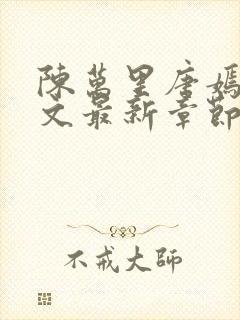 陳萬里唐嫣
文最新章節
不戒大師